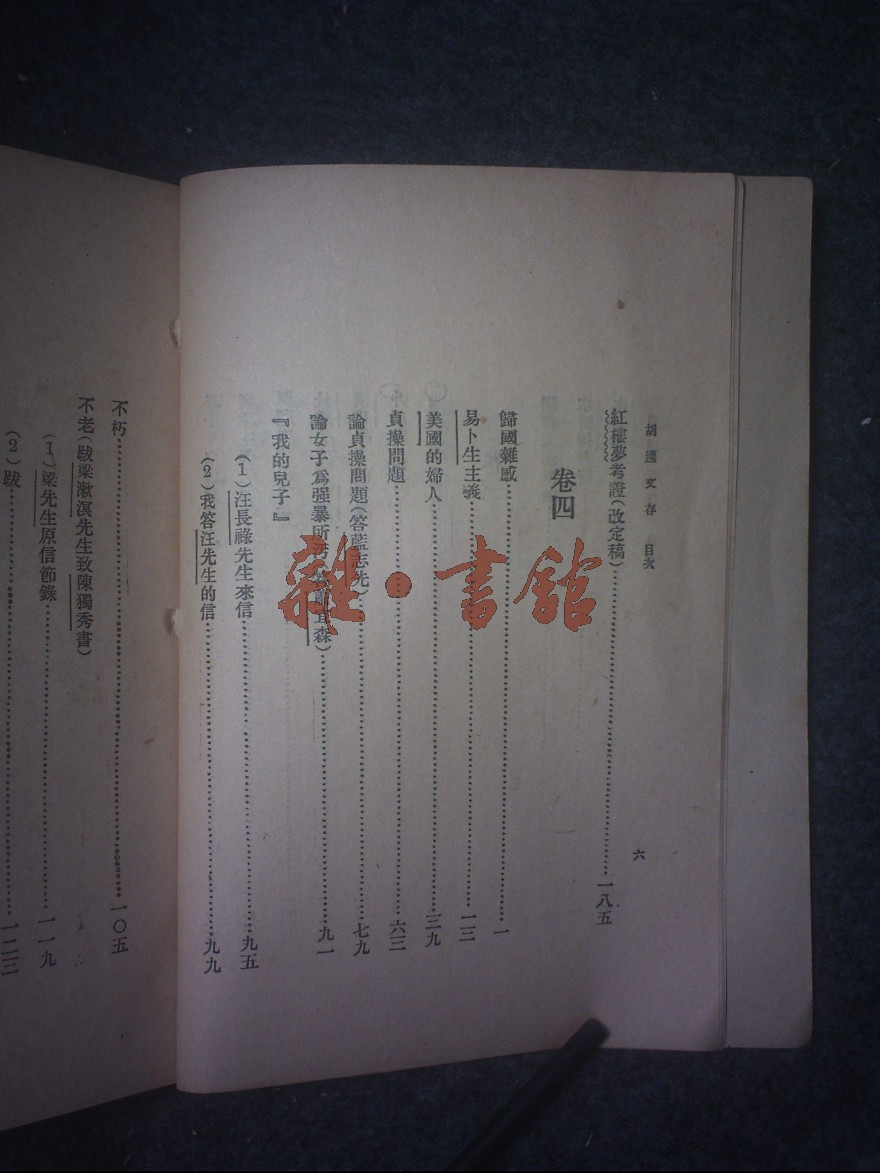 胡適文存 目次
六
紅樓夢考證(改定稿)……一八五
卷四
歸國雜感……一
易卜生主義……一三
美國的婦人……三九
貞操問題……六三
論貞操問題(答藍志先)……七九
論女子為强暴所森)……九一
『我的兒子』
(1)汪長祿先生來信……九五
(2)我答汪先生的信……九九
不朽……一〇五
不老(跋梁漱溟先生致陳獨秀書)
(1)梁先生原信節錄……一一九
(2)跋……一二三
雜·書館